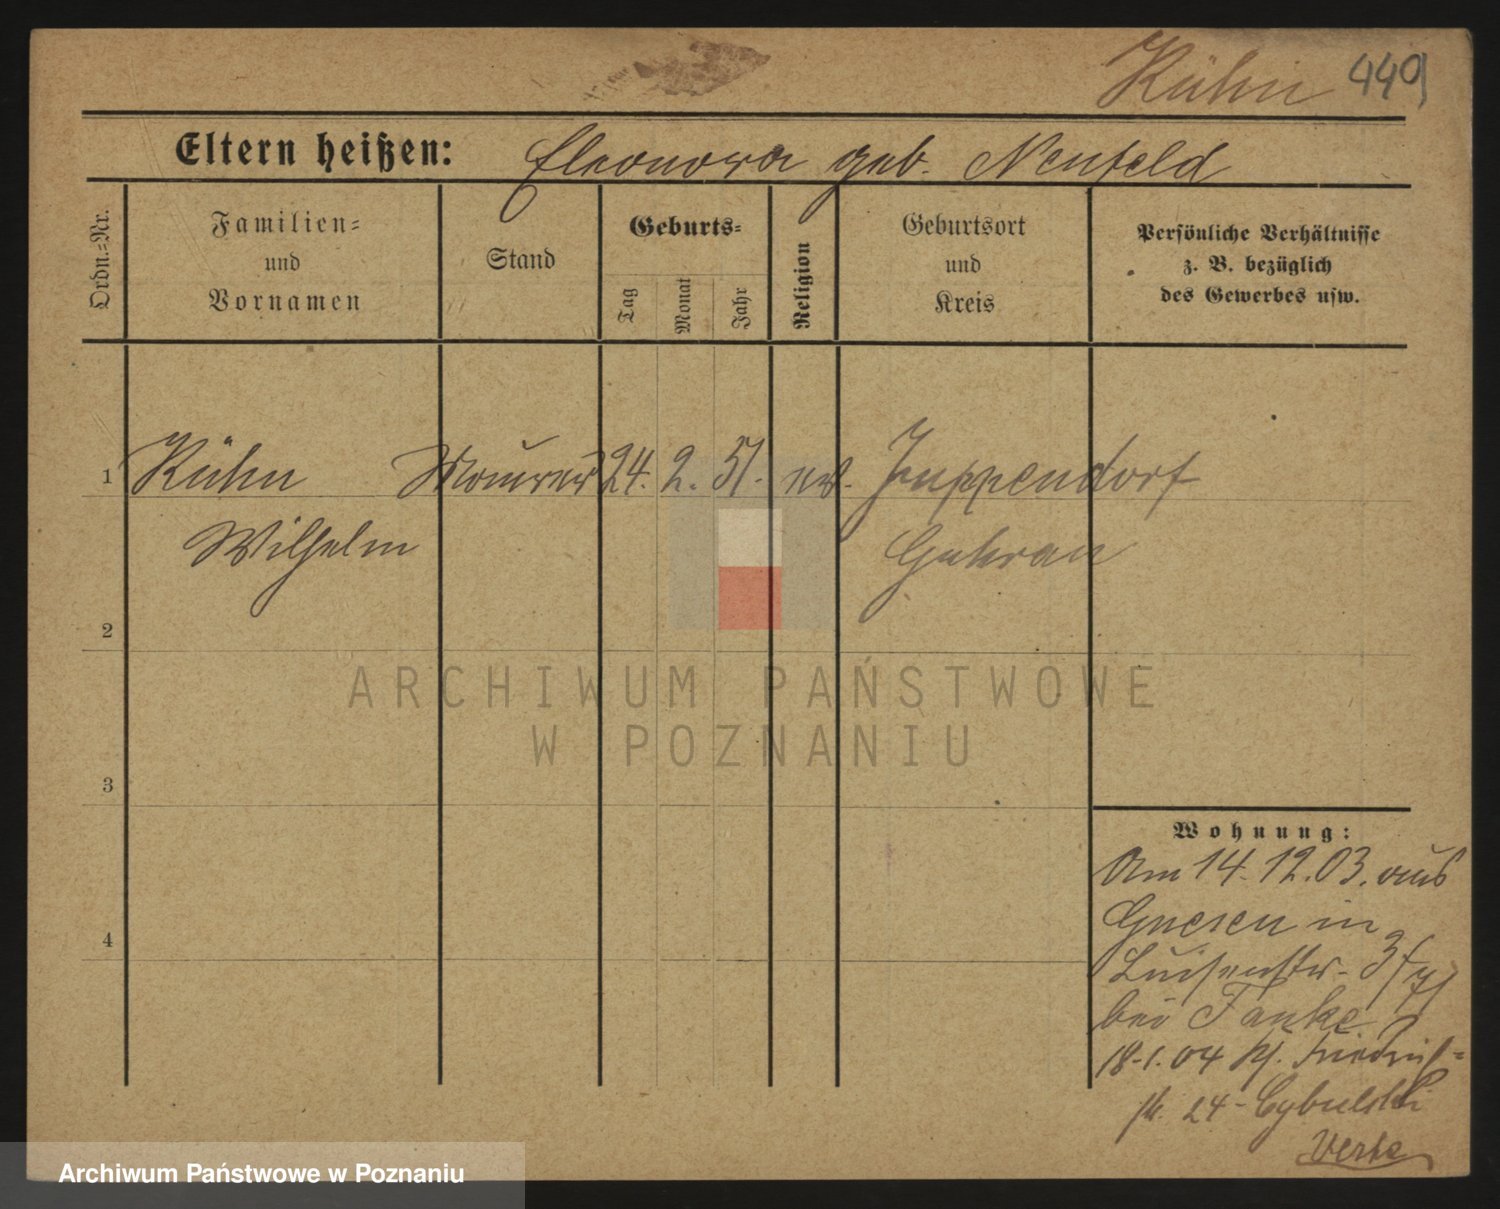 Kühn 449
Eltern heißen: Eleonora geb. Neufeld
Ordn.=Nr.
Familien=
und
Vornamen
Stand
Geburts=
Tag
Monat
Jahr
Religion
Geburtsort
und
Kreis
Persönliche Verhältnisse
z. B. bezüglich
des Gewerbes usw.
1 Kühn Maurer 24. 2. 51. ev. Juppendorf
Wilhelm Guhrau
2
3
4
Wohnung:
Am 14. 12. 03. aus
Gnesen in
Luisenstr. 3
bei Fanke
18.1.04 Friedrich=
str. 24 - Cybulski
ARCHIWUM PAŃSTWOWE
W POZNANIU
Archiwum Państwowe w Poznaniu